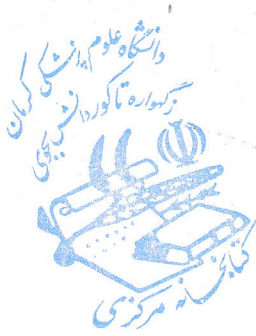 دانشگاه علوم پزشکی کرمان
زگهواره تا گور دانش بجوی
کتابخانه مرکزی